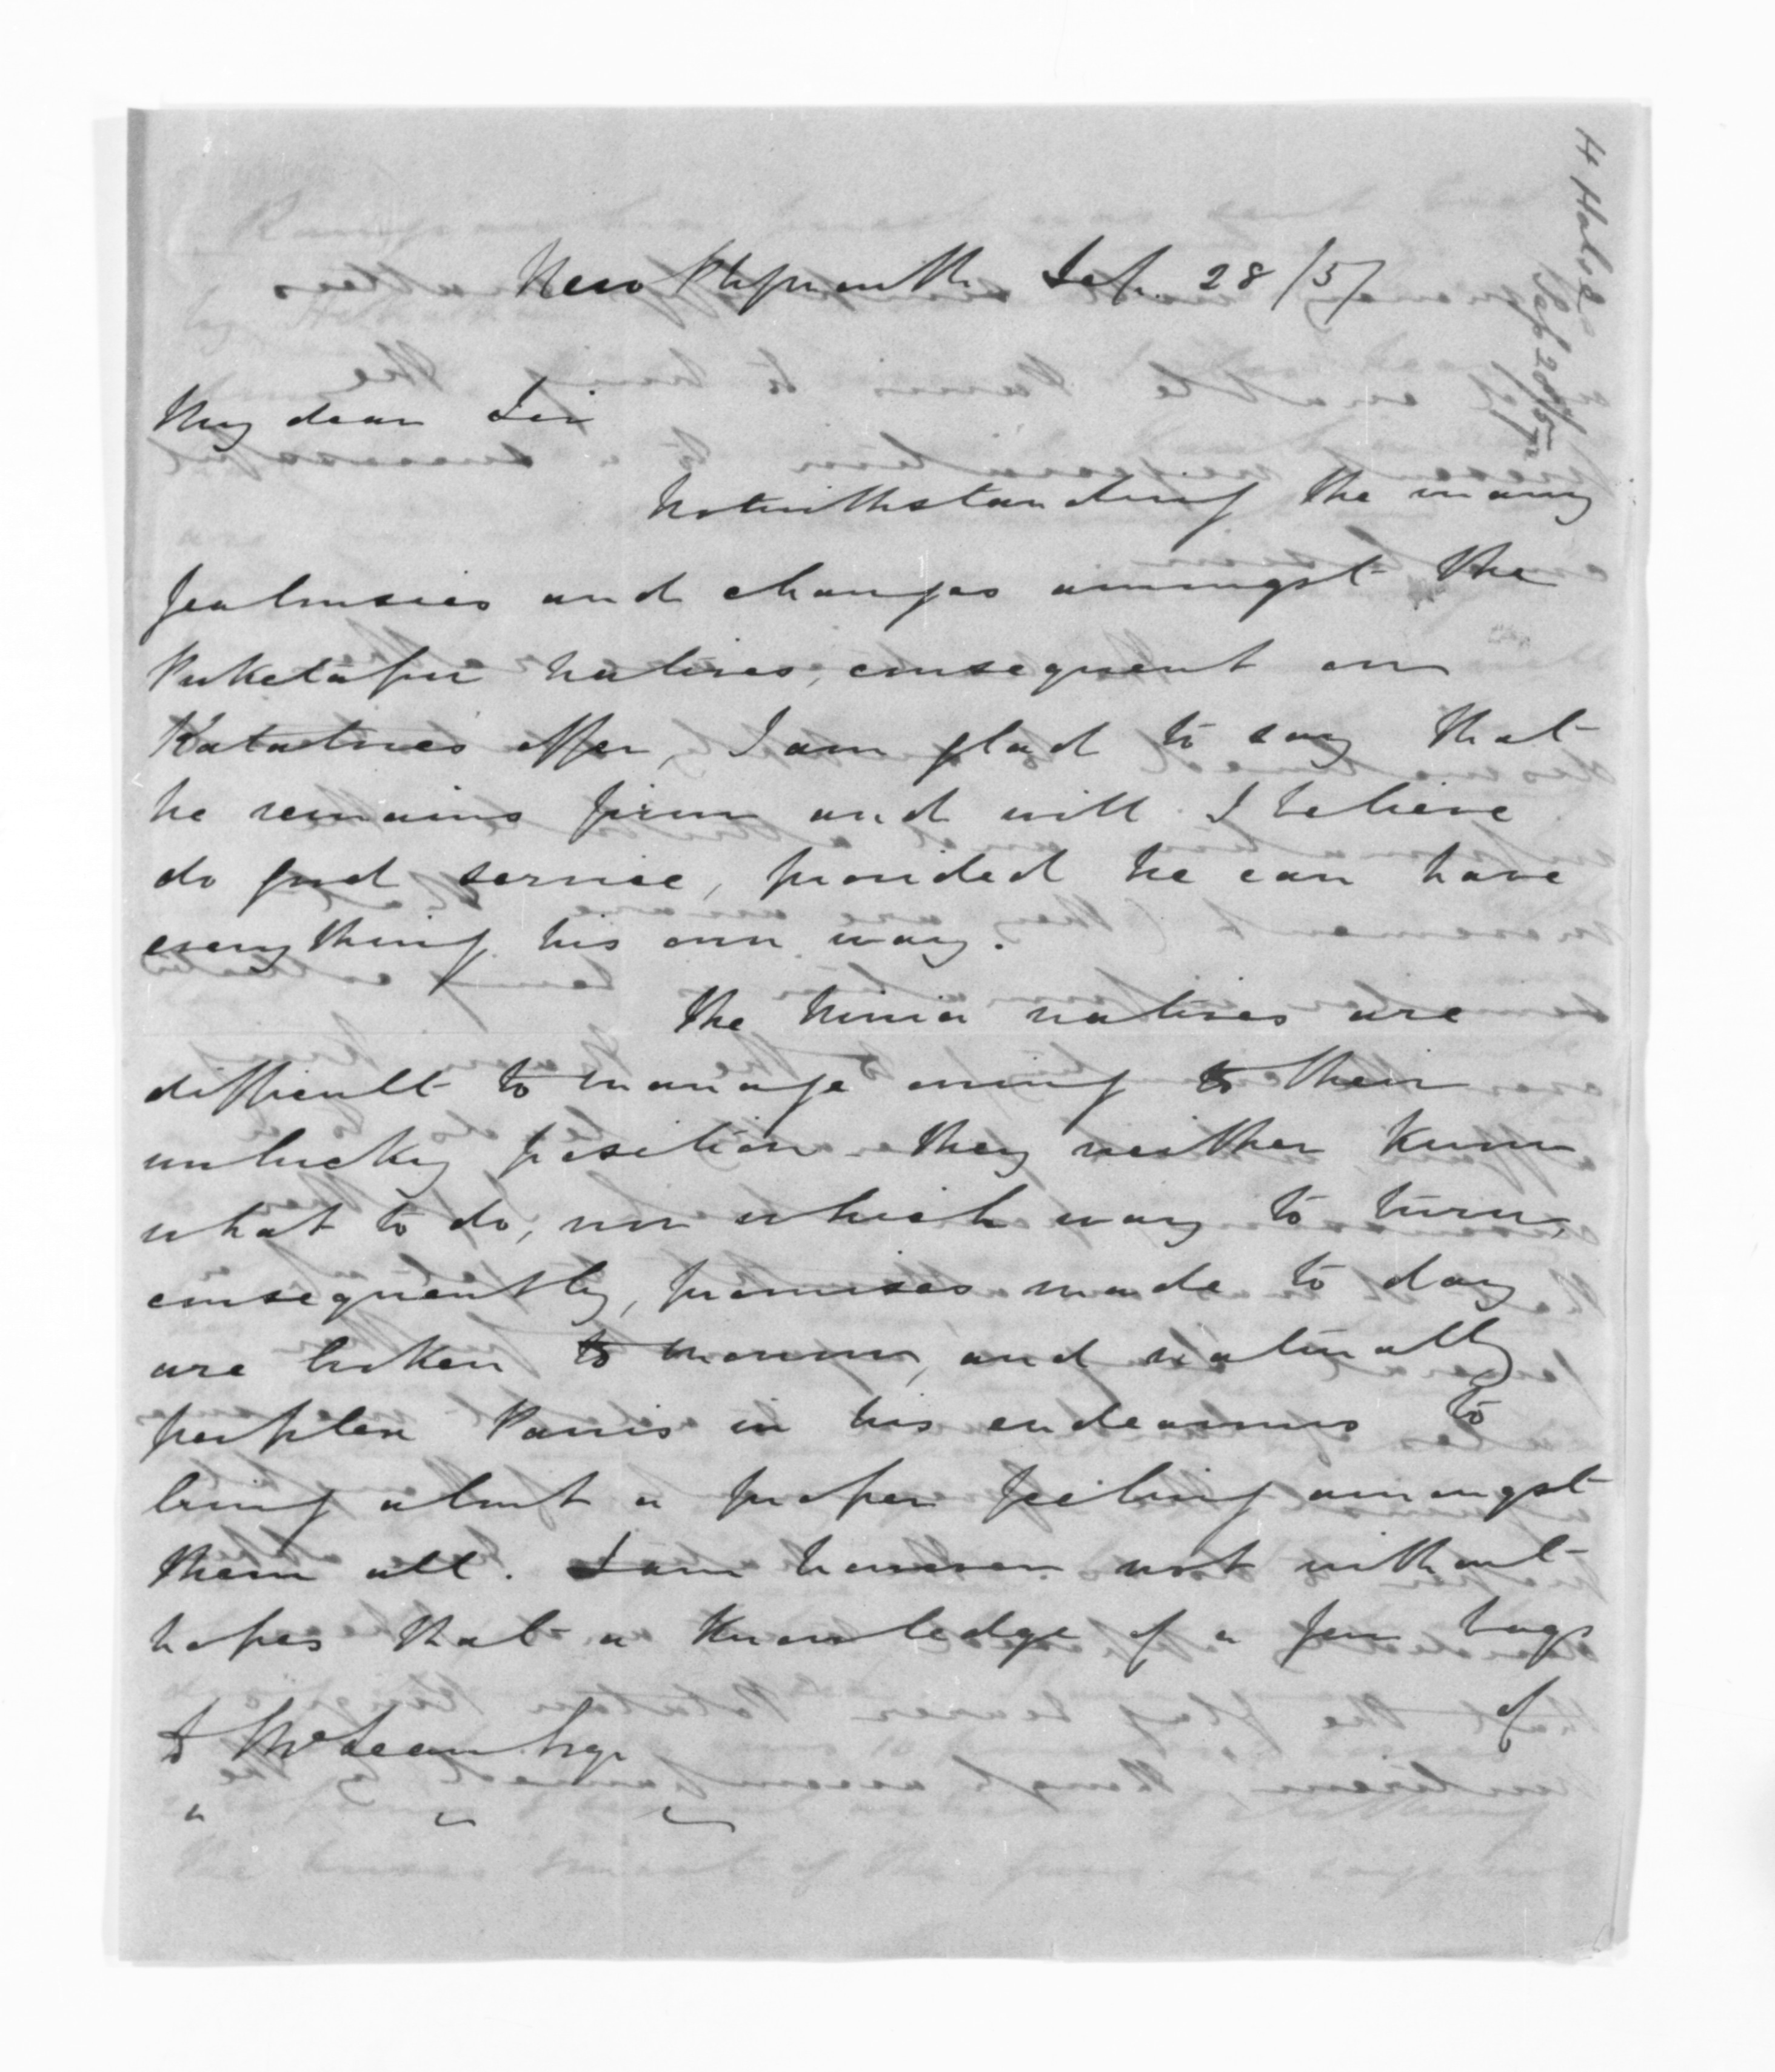 H Halse
Sep 28th/57
New Plymouth Sep. 28/57
My dear Sir
Notwithstanding the many
jealousies and changes amongst the
Puketapu natives, consequent on
Katatore's offer, I am glad to say that
he remains firm and will I believe
do good service, provided he can have
everything his own way.
The Ninia natives are
difficult to manage owing to their
unlucky position. They neither know
what to do, nor which way to turn,
consequently, promises made to day
are broken to morrow, and naturally
perplex Parris in his endeavours to
bring about a proper feeling amongst
them all. I am however not without
hopes that a knowledge of a few bags
of
D McLean Esqr
" " "